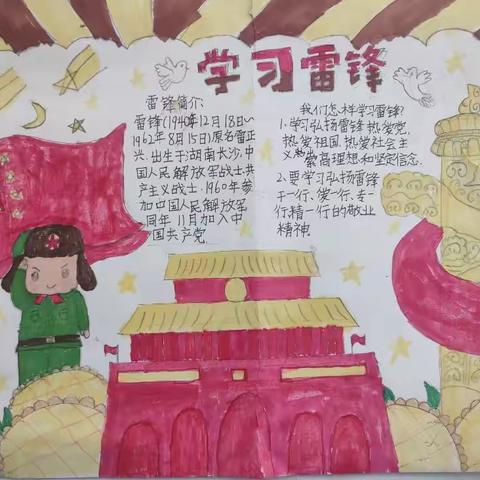 学习雷锋
雷锋简介
雷锋(1940年12月18日～
1962年8月15日),原名雷正
兴,出生于湖南长沙,中
国人民解放军战士,共
产主义战士,1960年参
加中国人民解放军
同年11月加入中
国共产党
我们怎样学习雷锋?
1.学习弘扬雷锋热爱党,
热爱祖国,热爱社会主
义
崇高理想和坚定信念.
2.要学习弘扬雷锋
干一行、爱一行、专一
行精一行的敬业
精神